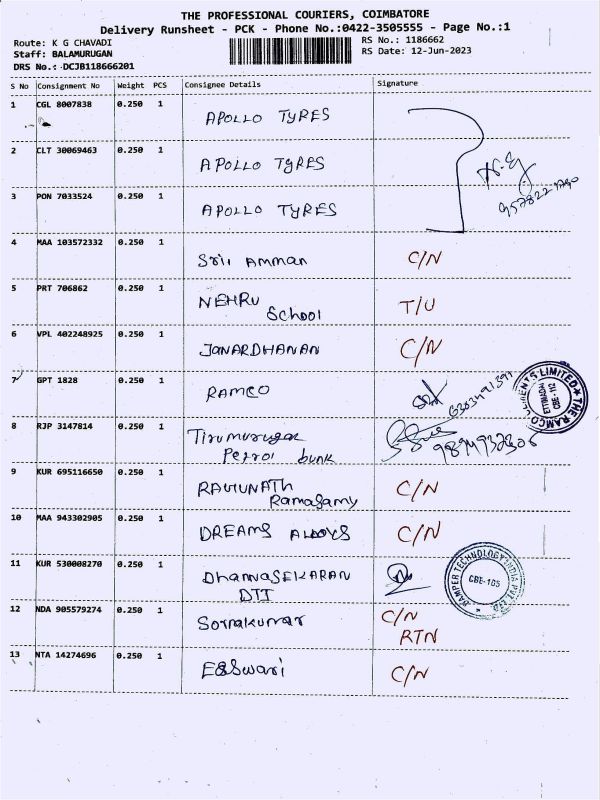 THE PROFESSIONAL COURIERS, COIMBATORE
Delivery Runsheet - PCK - Phone No.:0422-3505555 - Page No.:1
Route: K G CHAVADI
Staff: BALAMURUGAN
DRS No.: DCJB118666201
RS No.: 1186662
RS Date: 12-Jun-2023
S No Consignment No Weight PCS Consignee Details Signature
1 CGL 8007838 0.250 1 APOLLO TYRES
2 CLT 30069463 0.250 1 APOLLO TYRES
3 PON 7033524 0.250 1 APOLLO TYRES
4 MAA 103572332 0.250 1 Srii Amman C/N
5 PRT 706862 0.250 1 NEHRU School T/U
6 VPL 402248925 0.250 1 JANARDHANAN C/N
7 GPT 1828 0.250 1 RAMCO 6303491391
THE RAMCO CEMENTS LIMITED
ETTIMADAI
CBE-112
8 RJP 3147814 0.250 1 Tirumurugan
Petrol bunk
9 KUR 695116650 0.250 1 Ramasamy C/N
10 MAA 943302905 0.250 1 DREAMS ALLOYS C/N
11 KUR 530008270 0.250 1 DhanaSEKARAN
CBE-105
12 NDA 905579274 0.250 1 C/N
RTN
13 NTA 14274696 0.250 1 C/N